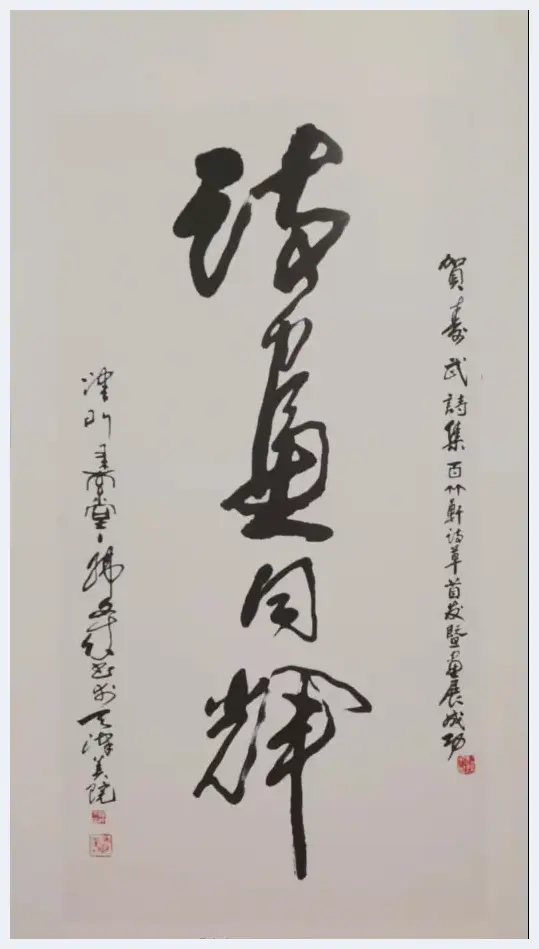 賀壽武詩集百竹軒诗草首发暨畫展成功
詩畫同輝
津門 堂主 於天津美院